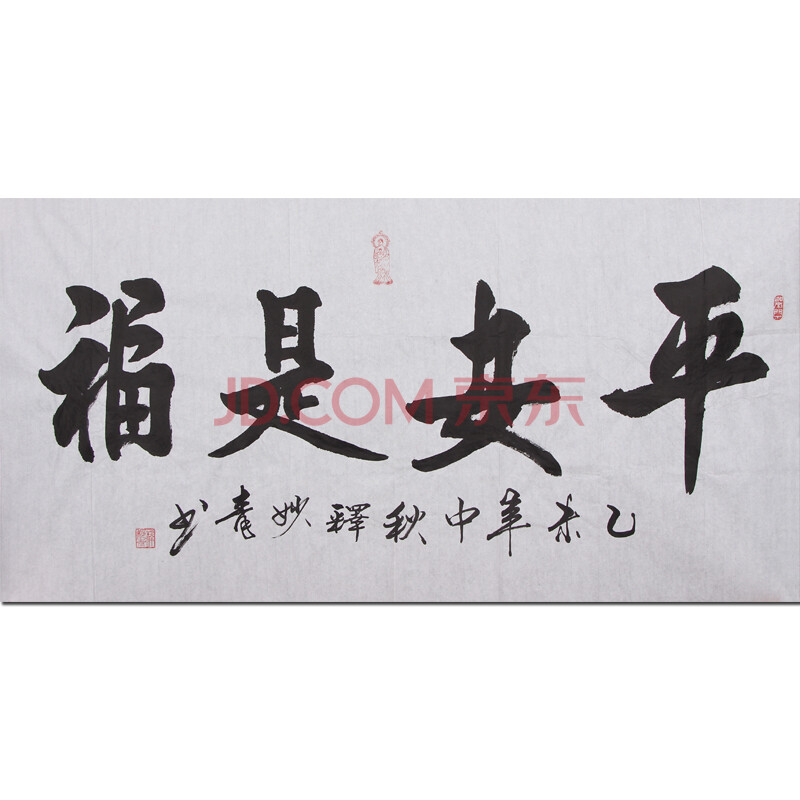 平安是福
乙未年中秋釋妙青书
JD.COM 京东